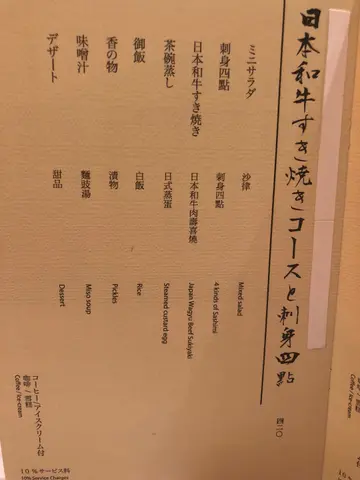 日本和牛すき焼きコースと刺身四點 四二〇
ミニサラダ 沙律 Mixed salad
刺身四點 刺身四點 4 kinds of Sashimi
日本和牛すき焼き 日本和牛肉壽喜燒 Japan Wagyu Beef Sukiyaki
茶碗蒸し 日式蒸蛋 Steamed custard egg
御飯 白飯 Rice
香の物 漬物 Pickles
味噌汁 麵豉湯 Miso soup
デザート 甜品 Dessert
コーヒー/アイスクリーム付
咖啡/雪糕
Coffee/Ice-cream
10%サービス料
10% Service Charges
Coffee/Ice-cream